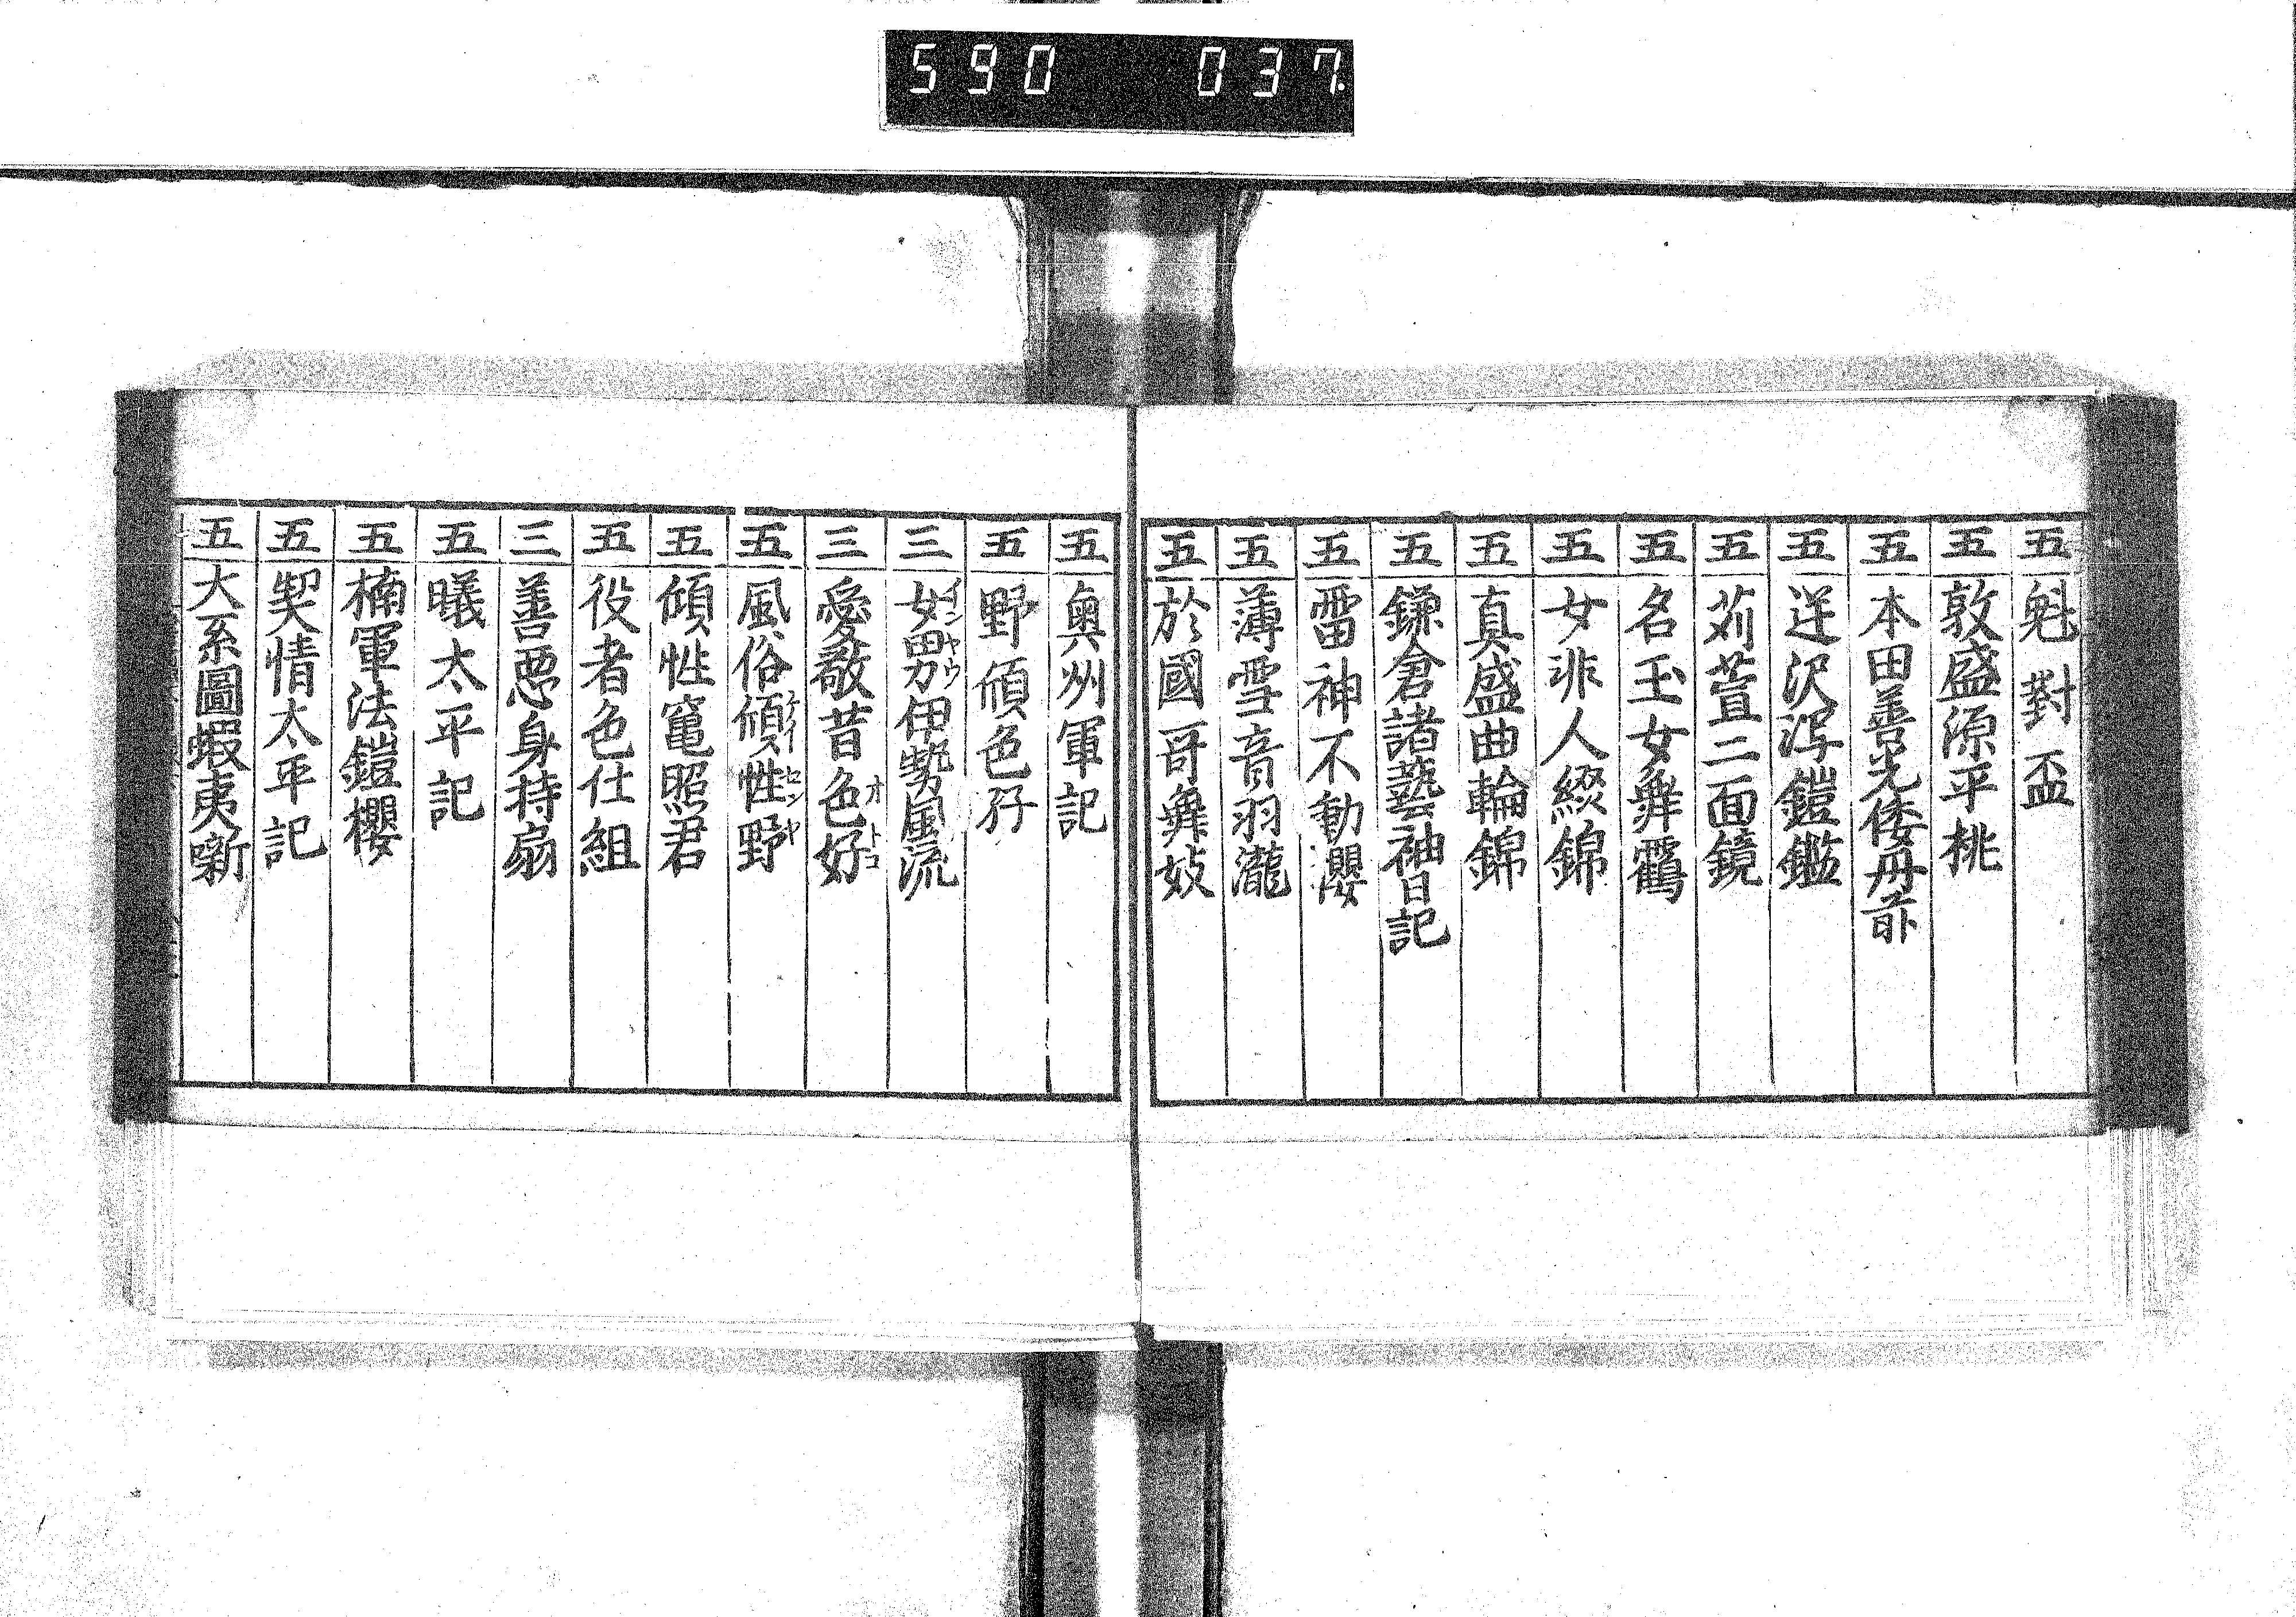 590 037
五 魁對盃
五 敦盛源平桃
五 本田善光倭丹前
五 逆沢瀉鎧鑑
五 苅萱二面鏡
五 名玉女舞鶴
五 女非人綴錦
五 真盛曲輪錦
五 鎌倉諸藝袖日記
五 雷神不動櫻
五 薄雪音羽瀧
五 於國哥舞妓
五 奥州軍記
五 野傾色孖
三 女男伊勢風流 インヤウ
三 愛敬昔色好 オトコ
五 風俗傾性野 ケイセンヤ
五 傾性竃照君
五 役者色仕組
三 善悪身持扇
五 曦太平記
五 楠軍法鎧櫻
五 契情太平記
五 大系圖蝦夷噺